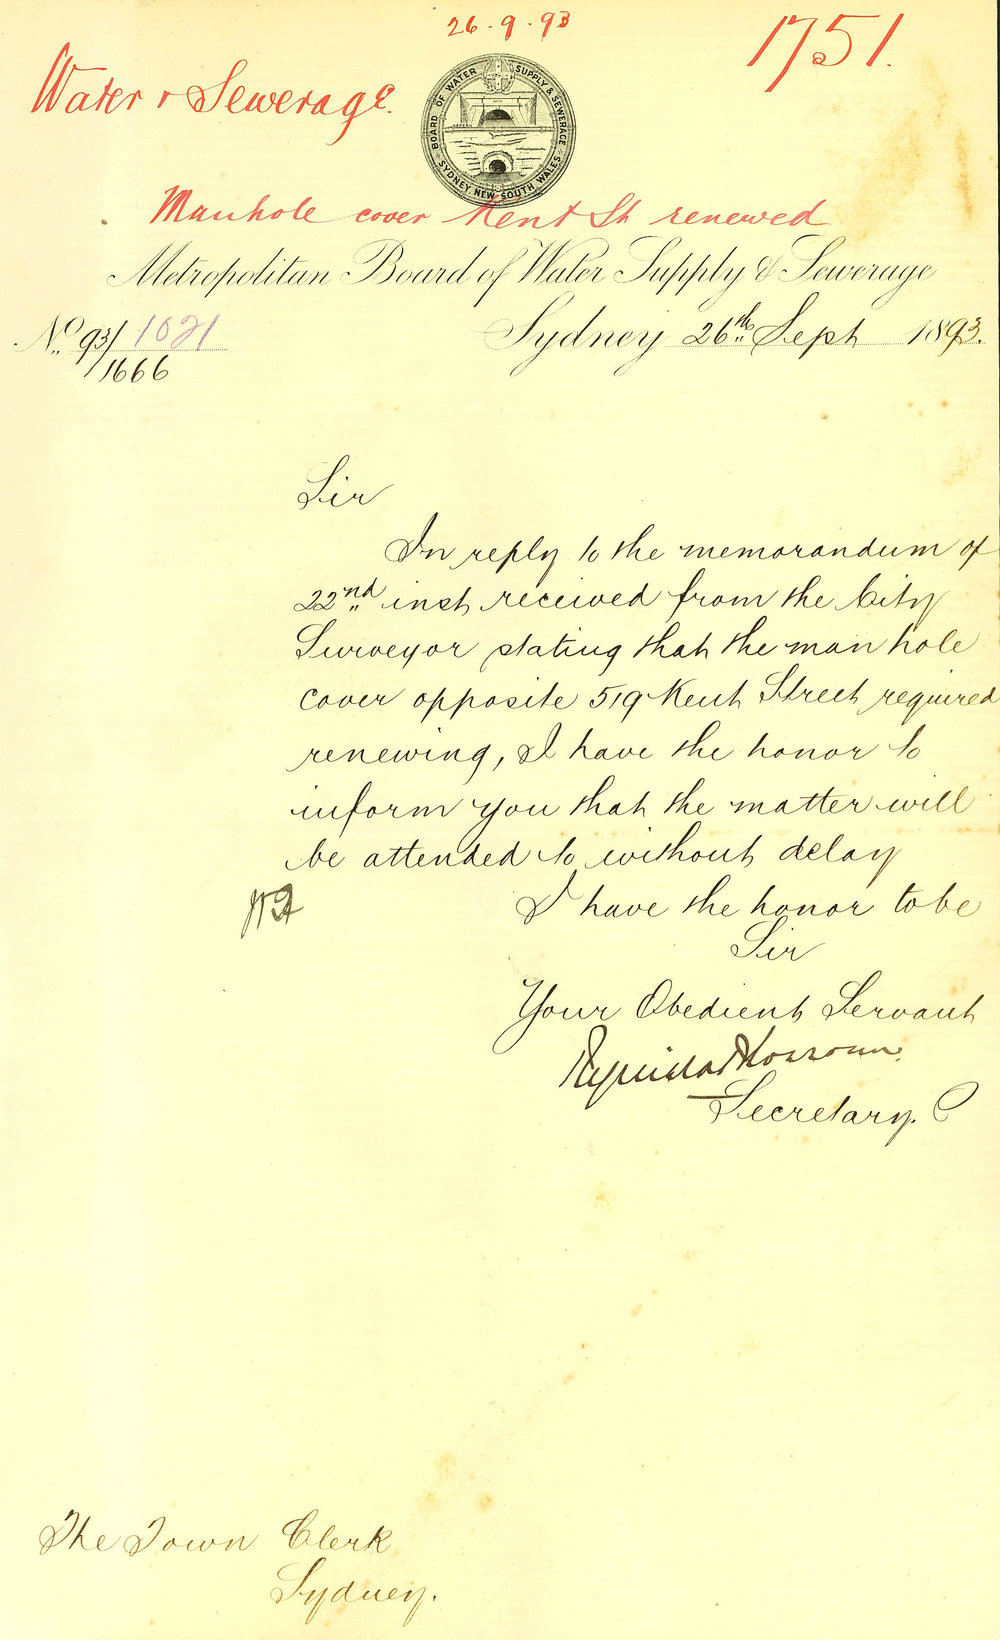 26.9.93
1751.
Water & Sewerage.
BOARD OF WATER SUPPLY & SEWERAGE
SYDNEY, NEW SOUTH WALES
Manhole cover Kent St renewed
Metropolitan Board of Water Supply & Sewerage
No. 93/1021
/1666
Sydney 26th Sept 1893.
Sir
In reply to the memorandum of
22nd inst received from the City
Surveyor stating that the man hole
cover opposite 519 Kent Street required
renewing, I have the honor to
inform you that the matter will
be attended to without delay
I have the honor to be
Sir
Your Obedient Servant
Secretary.
The Town Clerk
Sydney.